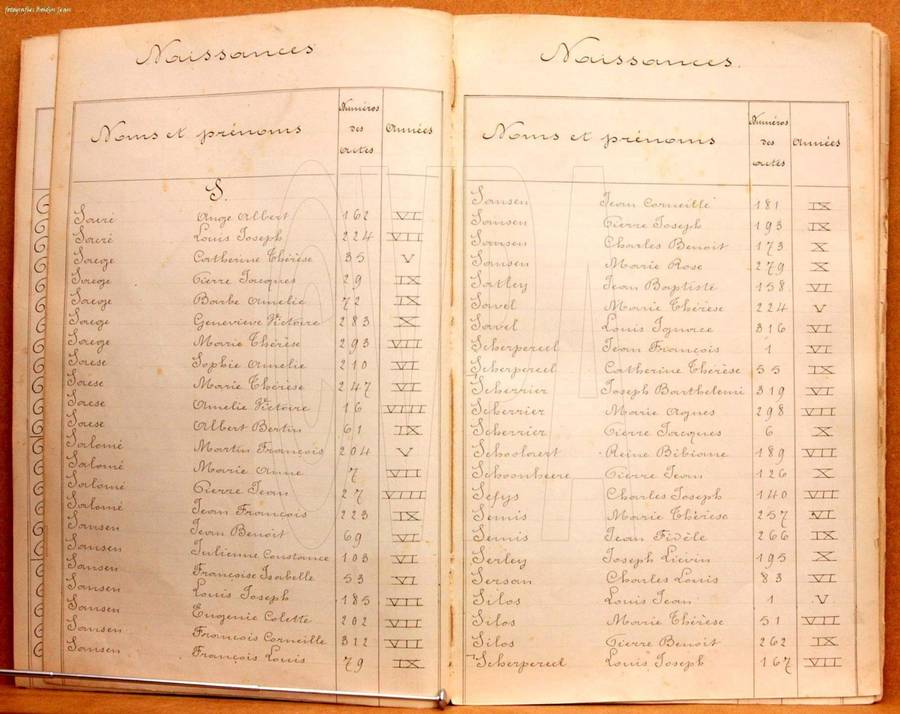 fotografie: Boidin Jean
Naissances
Noms et prénoms Numéros des actes Années
S.
Sacré Ange Albert 162 VI
Sacré Louis Joseph 224 VII
Saege Catherine Thérèse 35 V
Saege Pierre Jacques 29 IX
Saege Barbe Amelie 72 IX
Saege Genevieve Victoire 283 X
Saege Marie Thérèse 293 VII
Saese Sophie Amélie 210 VI
Saese Marie Thérèse 247 VI
Saese Amelie Victoire 16 VIII
Saese Albert Bertin 61 IX
Salomé Martin François 204 V
Salomé Marie Anne 7 VII
Salomé Pierre Jean 27 VIII
Salomé Jean François 223 IX
Sansen Jean Benoit 69 VI
Sansen Julienne Constance 103 VI
Sansen Françoise Isabelle 53 VI
Sansen Louis Joseph 185 VII
Sansen Eugenie Colette 202 VII
Sansen François Corneille 312 VII
Sansen François Louis 79 IX
Naissances.
Noms et prénoms Numéros des actes Années
Sansen Jean Corneille 181 IX
Sansen Pierre Joseph 193 IX
Sansen Charles Benoit 173 X
Sansen Marie Rose 279 X
Satley Jean Baptiste 158 VI
Savel Marie Thérèse 224 V
Savel Louis Ignace 316 VI
Scherpereel Jean François 1 VI
Scherpereel Catherine Thérèse 55 IX
Scherrier Joseph Barthelemi 319 VI
Scherrier Marie Agnes 298 VII
Scherrier Pierre Jacques 6 X
Schoolaert Reine Bibiane 189 VII
Schoonheere Pierre Jean 126 X
Sefys Charles Joseph 140 VII
Semis Marie Thérèse 257 VI
Semis Jean Fidèle 266 IX
Serley Joseph Liévin 195 X
Sersan Charles Louis 83 VI
Silos Louis Jean 1 V
Silos Marie Thérèse 51 VII
Silos Pierre Benoit 262 IX
Scherpereel Louis Joseph 167 VII